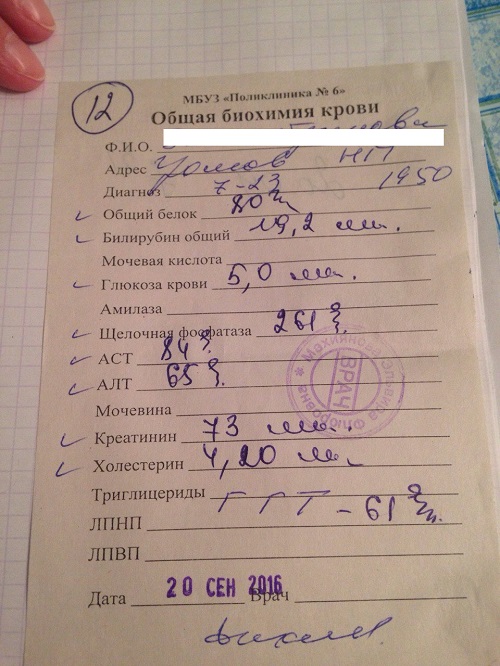 12
МБУЗ «Поликлиника № 6»
Общая биохимия крови
Ф.И.О.
Адрес
Диагноз 7-23 1950
Общий белок 80
Билирубин общий 19,2
Мочевая кислота
Глюкоза крови 5,0
Амилаза
Щелочная фосфатаза 261
АСТ 84
АЛТ 65
Мочевина
Креатинин 73
Холестерин 4,20
Триглицериды
ГГТ - 61
ЛПНП
ЛПВП
Дата 20 СЕН 2016 Врач
ВРАЧ